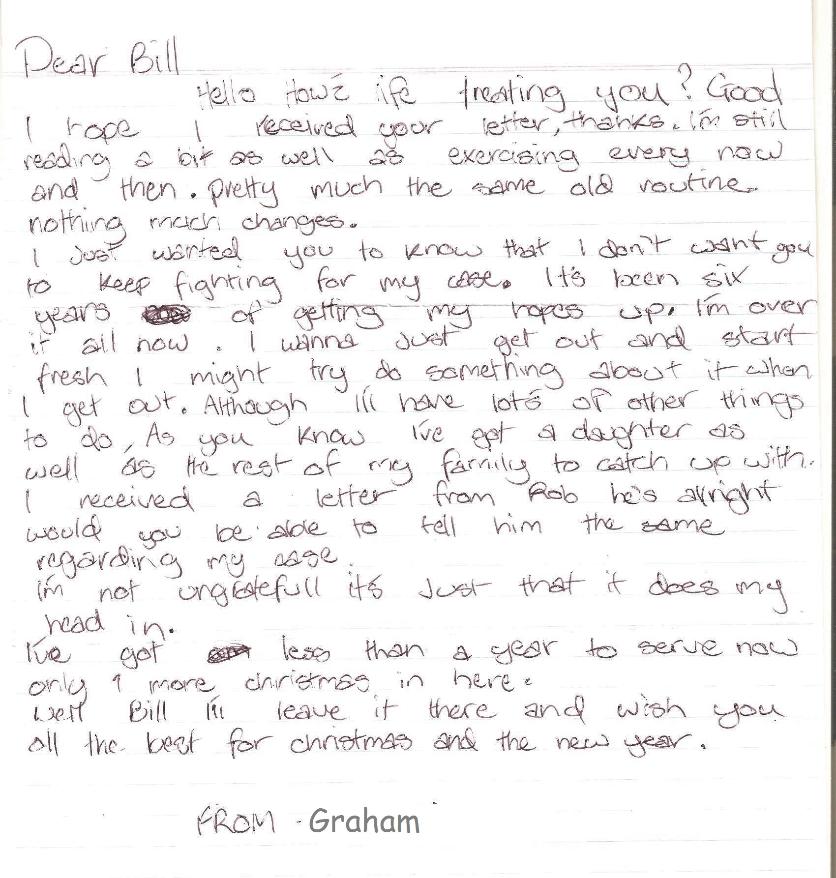 Dear Bill
Hello How's life treating you? Good
I hope I received your letter, thanks. I'm still
reading a bit as well as exercising every now
and then. pretty much the same old routine.
nothing much changes.
I Just wanted you to know that I don't want you
to keep fighting for my case. It's been six
years of getting my hopes up. I'm over
it all now. I wanna just get out and start
fresh I might try do something about it when
I get out. Although I'll have lot's of other things
to do, As you know I've got a daughter as
well as the rest of my family to catch up with.
I received a letter from Rob he's alright
would you be able to tell him the same
regarding my case.
I'm not ungratefull it's just that it does my
head in.
I've got less than a year to serve now
only 1 more christmas in here.
Well Bill I'll leave it there and wish you
all the best for christmas and the new year.
FROM - Graham